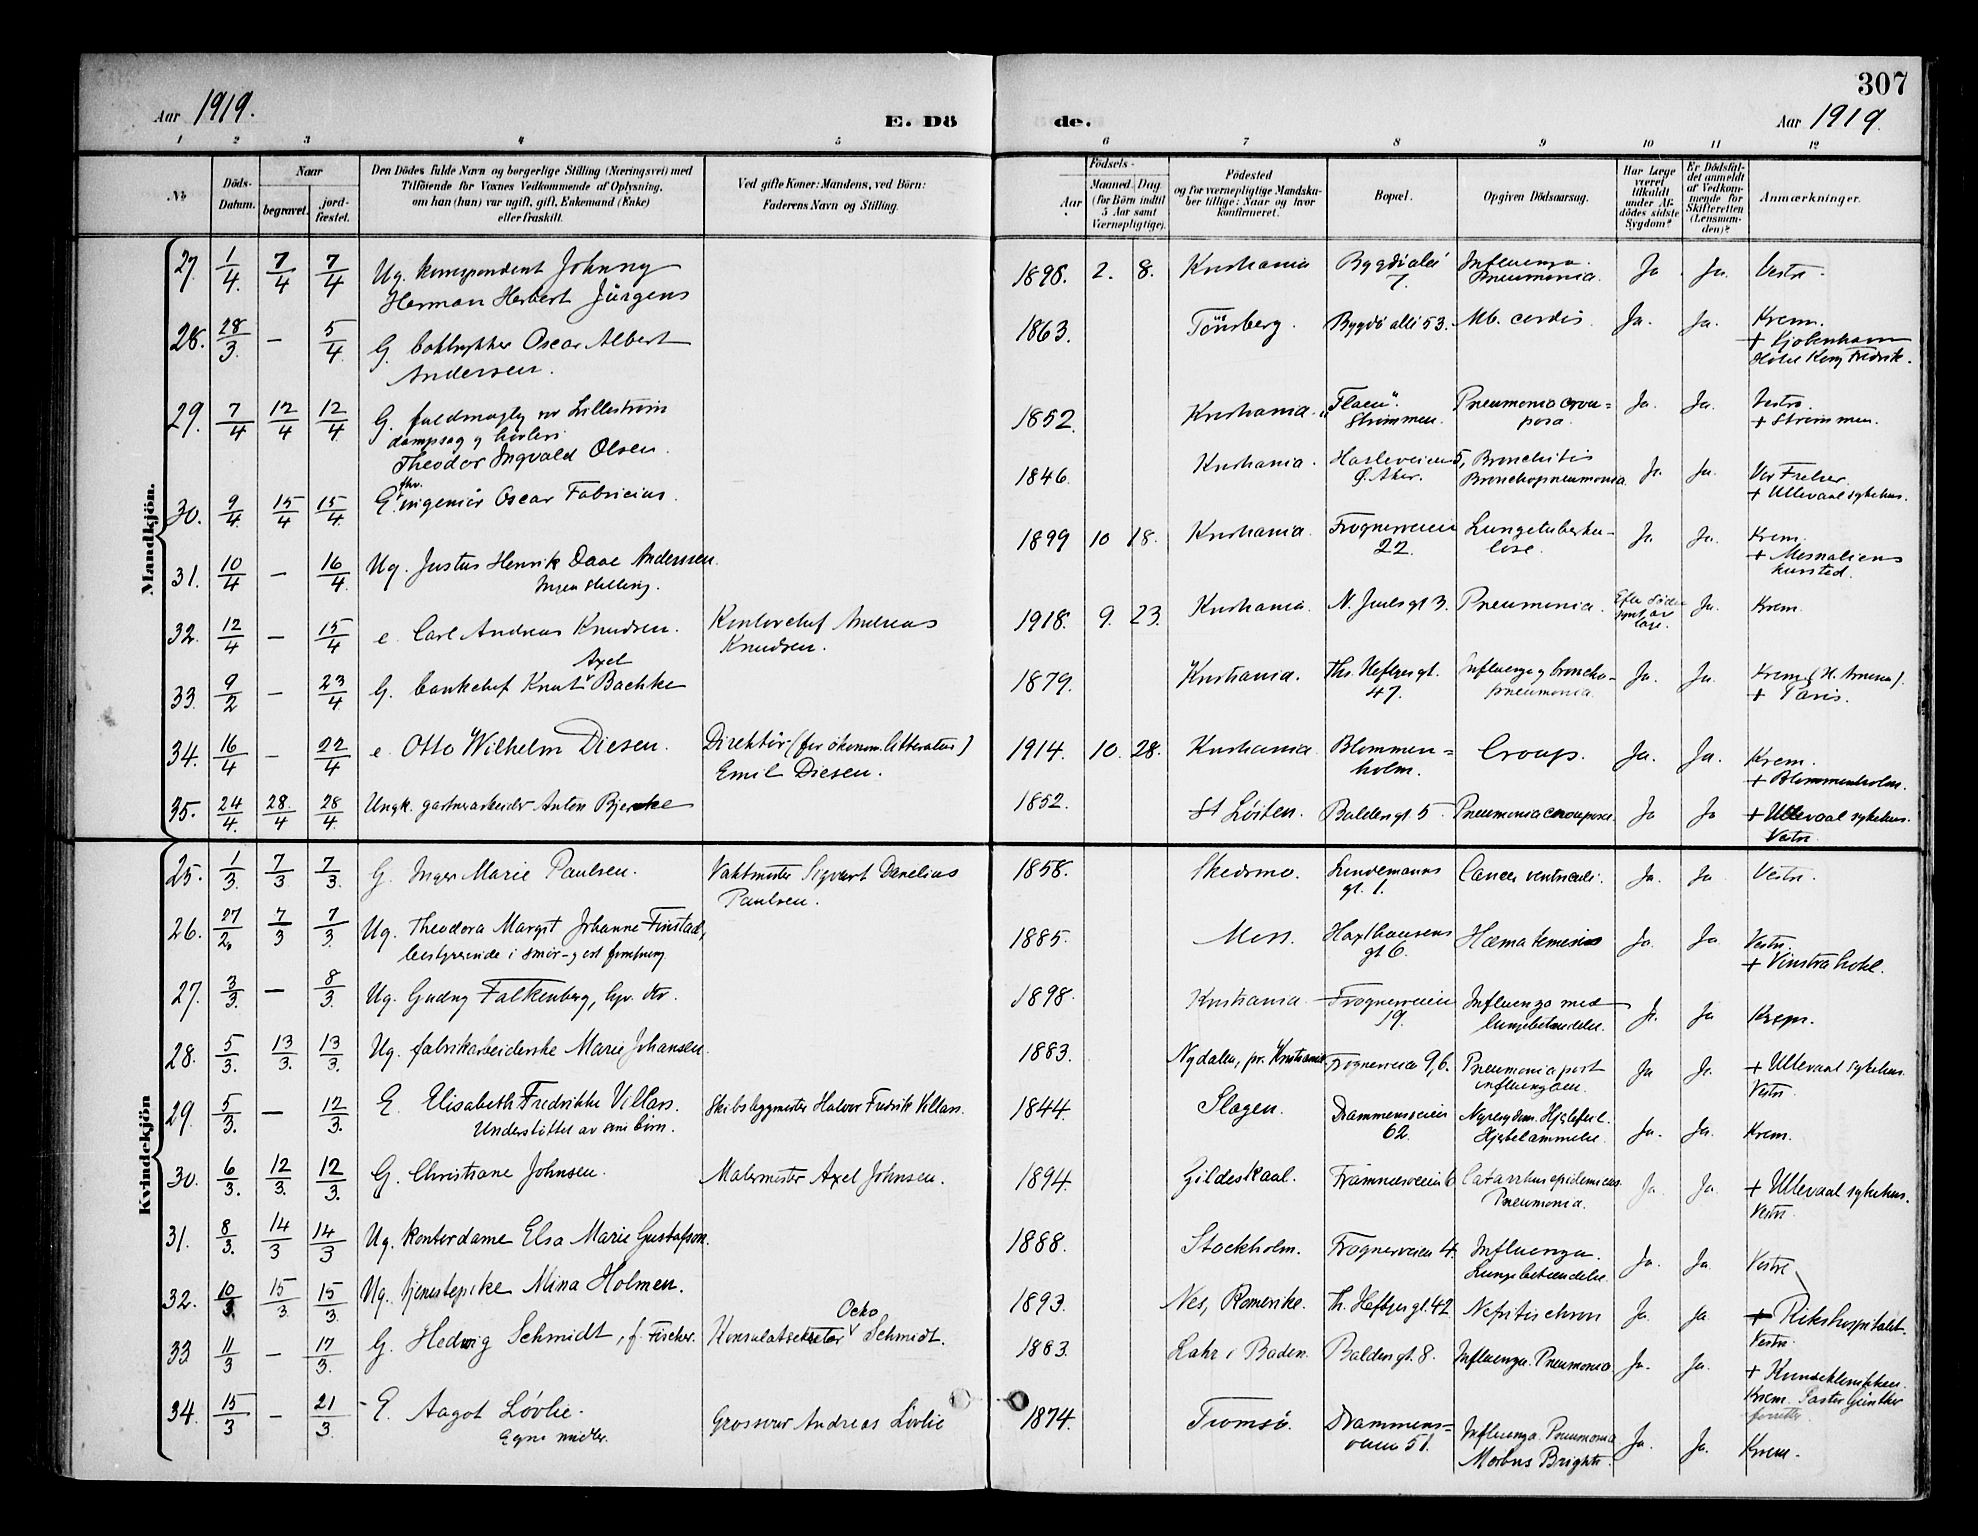 307
Aar 1919.
E. Dö de.
Aar 1919.
1 2 3 4 5 6 7 8 9 10 11 12
No
Döds-Datum.
Naar
begravet.
jord-fæstet.
Den Dödes fulde Navn og borgerlige Stilling (Næringsvei) med
Tilföiende for Voxnes Vedkommende af Oplysning,
om han (hun) var ugift, gift, Enkemand (Enke)
eller fraskilt.
Ved gifte Koner: Mandens, ved Börn:
Faderens Navn og Stilling.
Födsels-
Aar
Maaned. Dag
(for Börn indtil
5 Aar samt
Værnepligtige).
Födested
og for værnepligtige Mandska-
ber tillige: Naar og hvor
konfirmeret.
Bopæl.
Opgiven Dödsaarsag.
Har Læge
været
tilkaldt
under Af-
dödes sidste
Sygdom?
Er Dödsfal-
det anmeldt
af Vedkom-
mende for
Skifteretten
(Lensman-
den)?
Anmærkninger.
Mandkjön.
27. 1/4. 7/4 7/4 Ug. korrespondent Johnny
Herman Herbert Jürgens
1898. 2. 8. Kristiania Bygdö alle 7. Influenza. Pneumonia. Ja Ja. Vestre.
28. 28/3. — 5/4 G. boktrykker Oscar Albert
Andersen.
1863. Tönsberg. Bygdö allé 53. Mb. cordis. Ja. Ja. Krem.
+ Kjöbenhavn
Hotel Kong Fredrik.
29. 7/4 12/4 12/4. G. fuldmægtig ved Lillestrøm
dampsag og høvleri
Theodor Ingvald Olsen.
1852. Kristiania. "Flaen". Strømmen. Pneumonia crou=posa. Ja. Ja. Vestre
+ Strømmen.
30. 9/4 15/4 15/4. E. fhv. ingeniør Oscar Fabricius.
1846. Kristiania. Hasleveien 5, Ø. Aker. Bronchitis Bronchopneumonia Ja. Ja. Vor Frelser.
+ Ullevaal sykehus.
31. 10/4 — 16/4. Ug. Justus Henrik Daae Anderssen.
Ingen stilling.
1899 10 18. Kristiania. Frognerveien 22. Lungetuberku-lose. Ja Ja. Krem.
+ Mesnaliens
kursted.
32. 12/4 — 15/4 e. Carl Andreas Knudsen. Kontorchef Andreas
Knudsen.
1918. 9. 23. Kristiania. N. Juels gt 3. Pneumonia. Ja. Krem.
33. 9/2 — 23/4 G. bankchef Knut Axel Bachke
1879. Kristiania. Ths. Heftyes gt. 47. Influenza og broncho-pneumonia. Ja. Ja. Krem.
+ Paris.
34. 16/4 — 22/4 e. Otto Wilhelm Diesen. Direktör (for økonom. litteratur)
Emil Diesen.
1914. 10. 28. Kristiania Blommen=holm. Croup. Ja. Ja. Krem.
+ Blommenholm.
35. 24/4. 28/4 28/4. Ungk. gartnerarbeider Anton Bjerke
1852. Løiten. Baldersgt. 5 Pneumonia crouposa. Ja Ja + Ullevaal sykehus.
Vestre.
Kvindekjön
25. 1/3. 7/3 7/3. G. Inger Marie Paulsen. Vaktmester Sigvart Danelius
Paulsen.
1858. Skedsmo. Lindemanns gt. 1. Cancer ventriculi. Ja. Ja Vestre.
26. 27/2. 7/3 7/3. Ug. Theodora Margit Johanne Finstad,
bestyrerinde i smør- og ost forretning
1885. Moss. Haxthausens gt 6. Hæmatemesis Ja. Ja. Vestre.
+ Vinstra hotel.
27. 3/3. — 8/3. Ug. Gudny Falkenberg, hjv. dtr.
1898. Kristiania Frognerveien 19. Influenza med lungebetændelse. Ja. Ja Krem.
28. 5/3. 13/3. 13/3. Ug. fabrikarbeiderske Marie Johansen.
1883. Nydalen, pr. Kristiania Frognerveien 9, 6. Pneumonia post influenzaen. Ja Ja. + Ullevaal sykehus.
Vestre
29. 5/3. — 12/3. E. Elisabeth Fredrikke Villars. Skibsbyggmester Halvor Fredrik Villars.
Understøttet av sine børn.
1844. Slagen. Drammensveien 62. Nyresygdom. Hjertefeil. Hjertelammelse. Ja. Ja. Krem.
30. 6/3. 12/3. 12/3. G. Christiane Johnsen. Malermester Axel Johnsen.
1894. Gildeskaal. Framnesveien 6 Catarrhus epidemicus. Pneumonia. Ja. Ja. + Ullevaal sykehus.
Vestre.
31. 8/3. 14/3 14/3 Ug. kontordame Elsa Marie Gustafson.
1888. Stockholm. Frognerveien 4. Influenza. Lungebetændelse. Ja. Ja. Vestre
32. 10/3. 15/3. 15/3. Ug. tjenestepike Mina Holmen.
1893. Nes, Romerike. Th. Heftyes gt. 42 Nefritis chron Ja. Ja. + Rikshospitalet.
Vestre.
33 11/3 — 17/3. G. Hedwig Schmidt, f. Fischer. Konsulatsekretær Ocko Schmidt.
1883. Lahr i Baden. Baldersgt. 8. Influenza. Pneumonia Ja. Ja. + Kvindeklinikken.
Krem. Pastor Günther
forretter.
34. 15/3 — 21/3. E. Aagot Løvlie. Grosserer Andreas Løvlie
Egne midler.
1874. Tromsø. Drammens-veien 51. Influenza. Pneumonia Morbus Brightii. Ja. Ja. Krem.